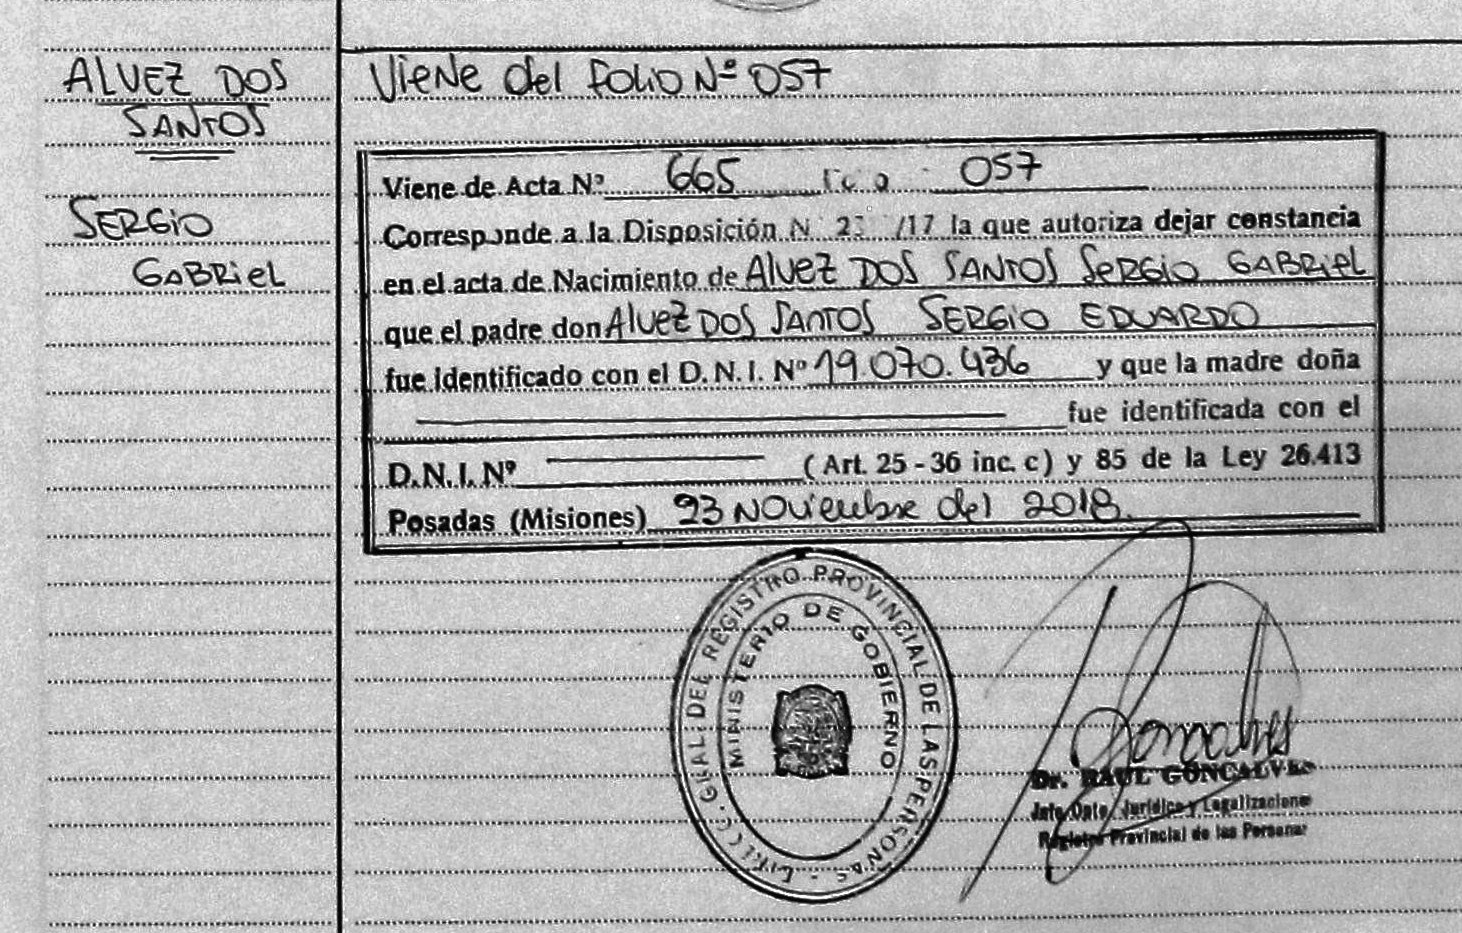 ALVEZ DOS
SANTOS
SERGIO
GABRIEL
VIENE del FOLIO Nº 057
Viene de Acta Nº 665 057
Corresponde a la Disposición N /17 la que autoriza dejar constancia
en el acta de Nacimiento de ALVEZ DOS SANTOS SERGIO GABRIEL
que el padre don ALVEZ DOS SANTOS SERGIO EDUARDO
fue identificado con el D. N. I. Nº 19.070.436 y que la madre doña
fue identificada con el
D.N.I. Nº (Art. 25 - 36 inc. c) y 85 de la Ley 26.413
Posadas (Misiones) 23 Noviembre del 2018.
GRAL. DEL REGISTRO PROVINCIAL DE LAS PERSONAS
MINISTERIO DE GOBIERNO
Goncalves
Dr. RAUL GONCALVES
Jefe Dpto. Jurídico y Legalizaciones
Registro Provincial de las Personas